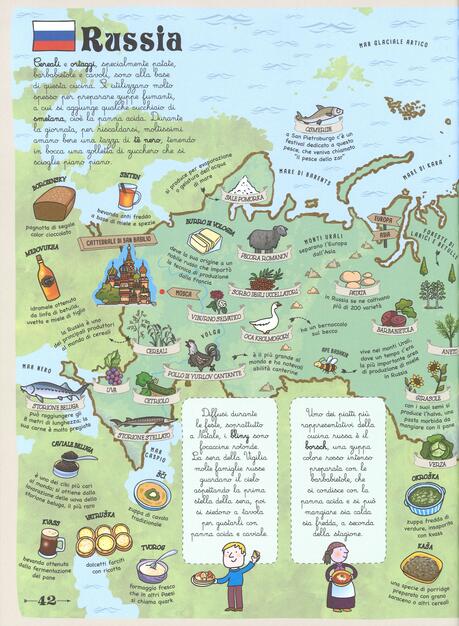 Russia
Cereali e ortaggi, specialmente patate,
barbabietole e cavoli, sono alla base
di questa cucina. Si utilizzano molto
spesso per preparare zuppe fumanti,
a cui si aggiunge qualche cucchiaio di
smetana, cioè la panna acida. Durante
la giornata, per riscaldarsi, moltissimi
amano bere una tazza di tè nero, tenendo
in bocca una zolletta di zucchero che si
scioglie piano piano.
MAR GLACIALE ARTICO
a San Pietroburgo c'è un
festival dedicato a questo
pesce, che veniva chiamato
"il pesce dello zar"
MARE DI BARENTS
MARE DI KARA
si produce per evaporazione
o gelatura dell'acqua
di mare
SALE POMORKA
BORODINSKY
pagnotta di segale
color cioccolato
SBITEN
bevanda anti freddo
a base di miele e spezie
MEDOVUKHA
idromele ottenuto
da linfa di betulla,
uvetta e miele di tiglio
CATTEDRALE DI SAN BASILIO
BURRO DI VOLOGDA
deve la sua origine a un
nobile russo che importò
la tecnica di produzione
dalla Francia
PECORA ROMANOV
MONTI URALI
separano l'Europa
dall'Asia
EUROPA
ASIA
FORESTE DI
LARICI E BETULLE
MOSCA
SORBO DEGLI UCCELLATORI
VIBURNO SELVATICO
PATATA
in Russia se ne coltivano
più di 200 varietà
BARBABIETOLA
la Russia è uno
dei principali produttori
al mondo di cereali
CEREALI
VOLGA
OCA KHOLMOGORY
ha un bernoccolo
sul becco
POLLO DI YURLOV CANTANTE
è il più grande al
mondo e ha notevoli
abilità canterine
APE BASHKIR
vive nei monti Urali
dove un tempo c'era
la più importante area
di produzione di miele
in Russia
GIRASOLE
con i suoi semi si
produce l'halva, una
pasta morbida da
mangiare con il pane
MAR NERO
UVA
CETRIOLO
STORIONE BELUGA
può raggiungere gli
8 metri di lunghezza; la
sua carne è molto pregiata
STORIONE STELLATO
MAR
CASPIO
CAVIALE BELUGA
è uno dei cibi più cari
al mondo; si ottiene dalla
lavorazione delle uova dello
storione beluga, il più raro
ŠČI
zuppa di cavolo
tradizionale
KVASS
bevanda ottenuta
dalla fermentazione
del pane
VATRUŠKA
dolcetti farciti
con ricotta
TVOROG
formaggio fresco
che in altri Paesi
si chiama quark
Diffusi durante
le feste, soprattutto
a Natale, i bliny sono
focaccine rotonde.
La sera della Vigilia
molte famiglie russe
guardano il cielo
aspettando la prima
stella della sera, poi
si siedono a tavola
per gustarli con
panna acida e caviale.
Uno dei piatti più
rappresentativi della
cucina russa è il
borsch, una zuppa
color rosso intenso
preparata con le
barbabietole, che
si condisce con la
panna acida e si può
mangiare sia calda
sia fredda, a seconda
della stagione.
VERZA
OKROŠKA
zuppa fredda di
verdure, insaporita
con kvass
KAŠA
una specie di porridge
preparato con grano
saraceno o altri cereali
42